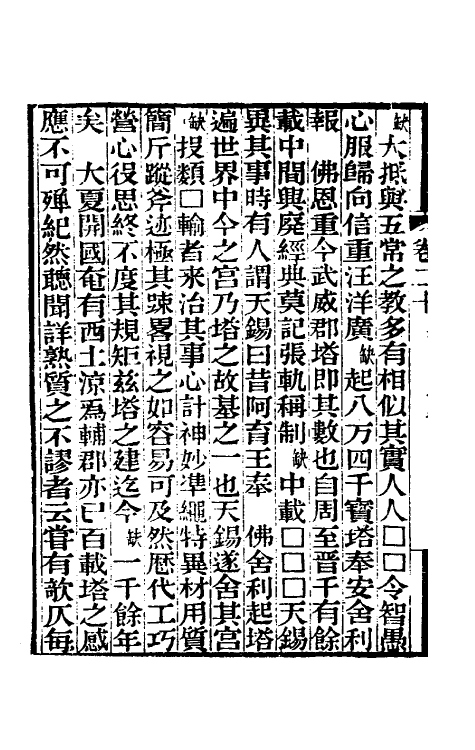 缺大抵與五常之教多有相似其實人人□□令智愚
心服歸向信重汪洋廣缺起八万四千寶塔奉安舍利
報　佛恩重今武威郡塔即其數也自周至晉千有餘
載中間興廢經典莫記張軌稱制缺中載□□□天錫
異其事時有人謂天錫曰昔阿育王奉　佛舍利起塔
遍世界中今之宮乃塔之故基之一也天錫遂舍其宮
缺授類□輸者来治其事心計神妙準繩特異材用質
簡斤蹤斧迹極其踈畧視之如容易可及然歷代工巧
營心役思終不度其規矩兹塔之建迄今缺一千餘年
矣　大夏開國奄有西土凉爲輔郡亦已百載塔之感
應不可殫紀然聽聞詳熟質之不謬者云嘗有欹仄每
卷二十